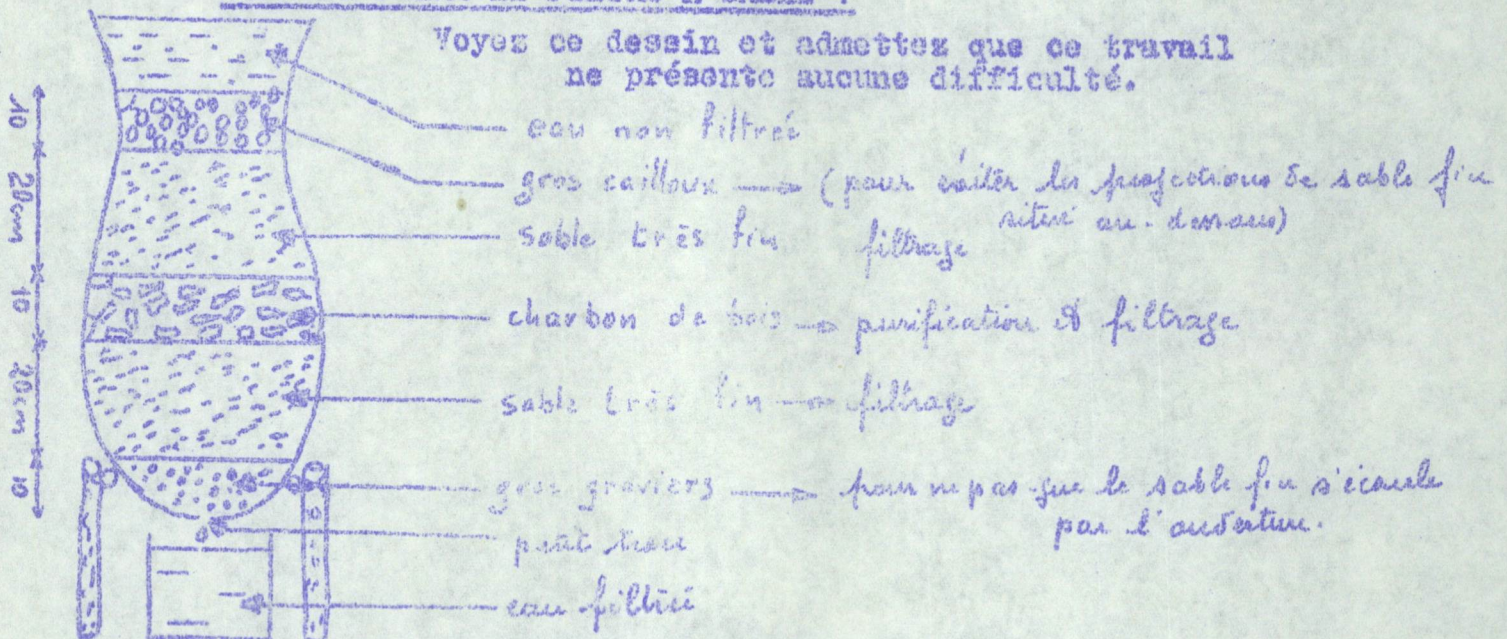 Voyez ce dessin et admettez que ce travail
ne présente aucune difficulté.
eau non filtrée
gros cailloux → (pour éviter les projections de sable fin
situé au-dessous)
sable très fin filtrage
charbon de bois → purification & filtrage
sable très fin → filtrage
gros graviers → pour ne pas que le sable fin s'écoule
par l'ouverture.
petit trou
eau filtrée
10
20cm
10
20cm
10